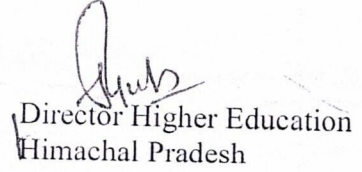 Director Higher Education
Himachal Pradesh